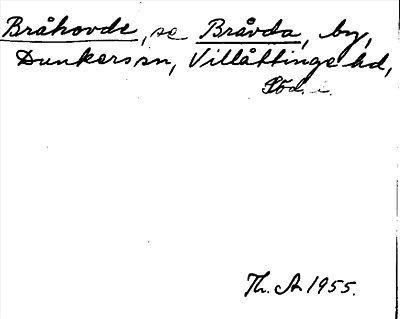 Bråhovde, se Bråvda, by,
Dunkers sn, Villåttinge hd,
Söd.
Th. A. 1955.